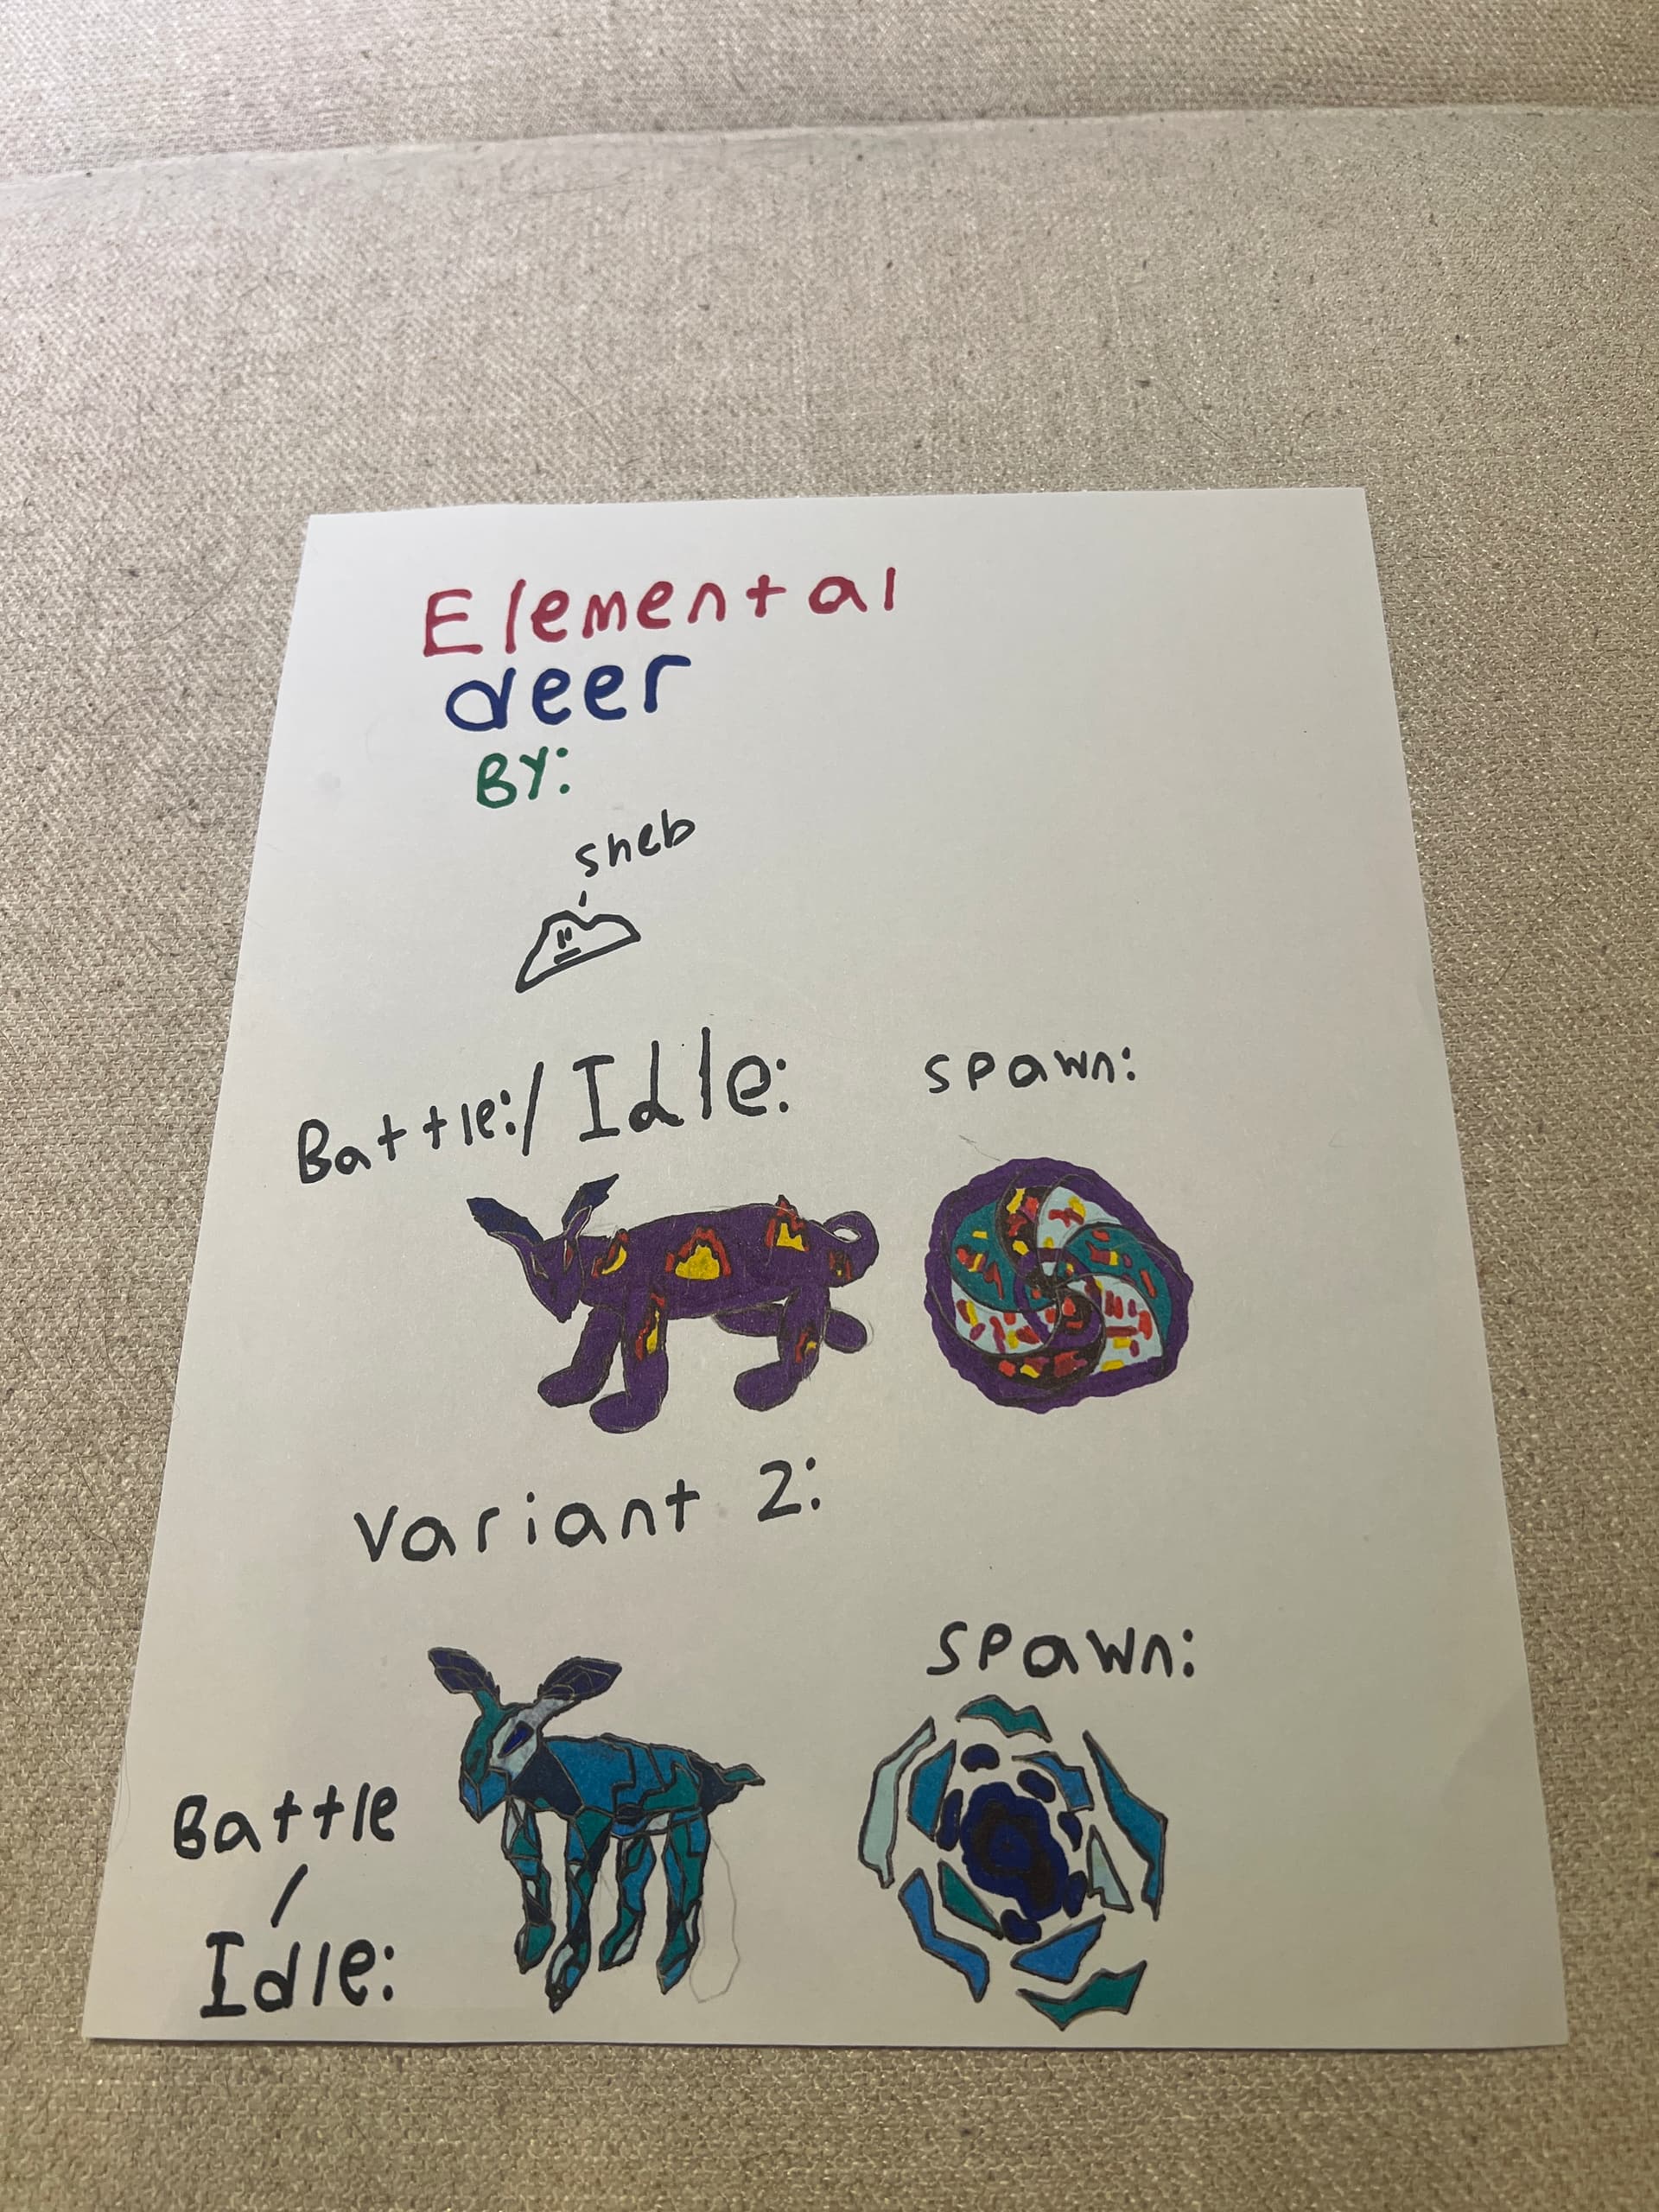 Elemental
deer
BY:
sheb
Battle:/Idle:
spawn:
Variant 2:
spawn:
Battle
/
Idle: